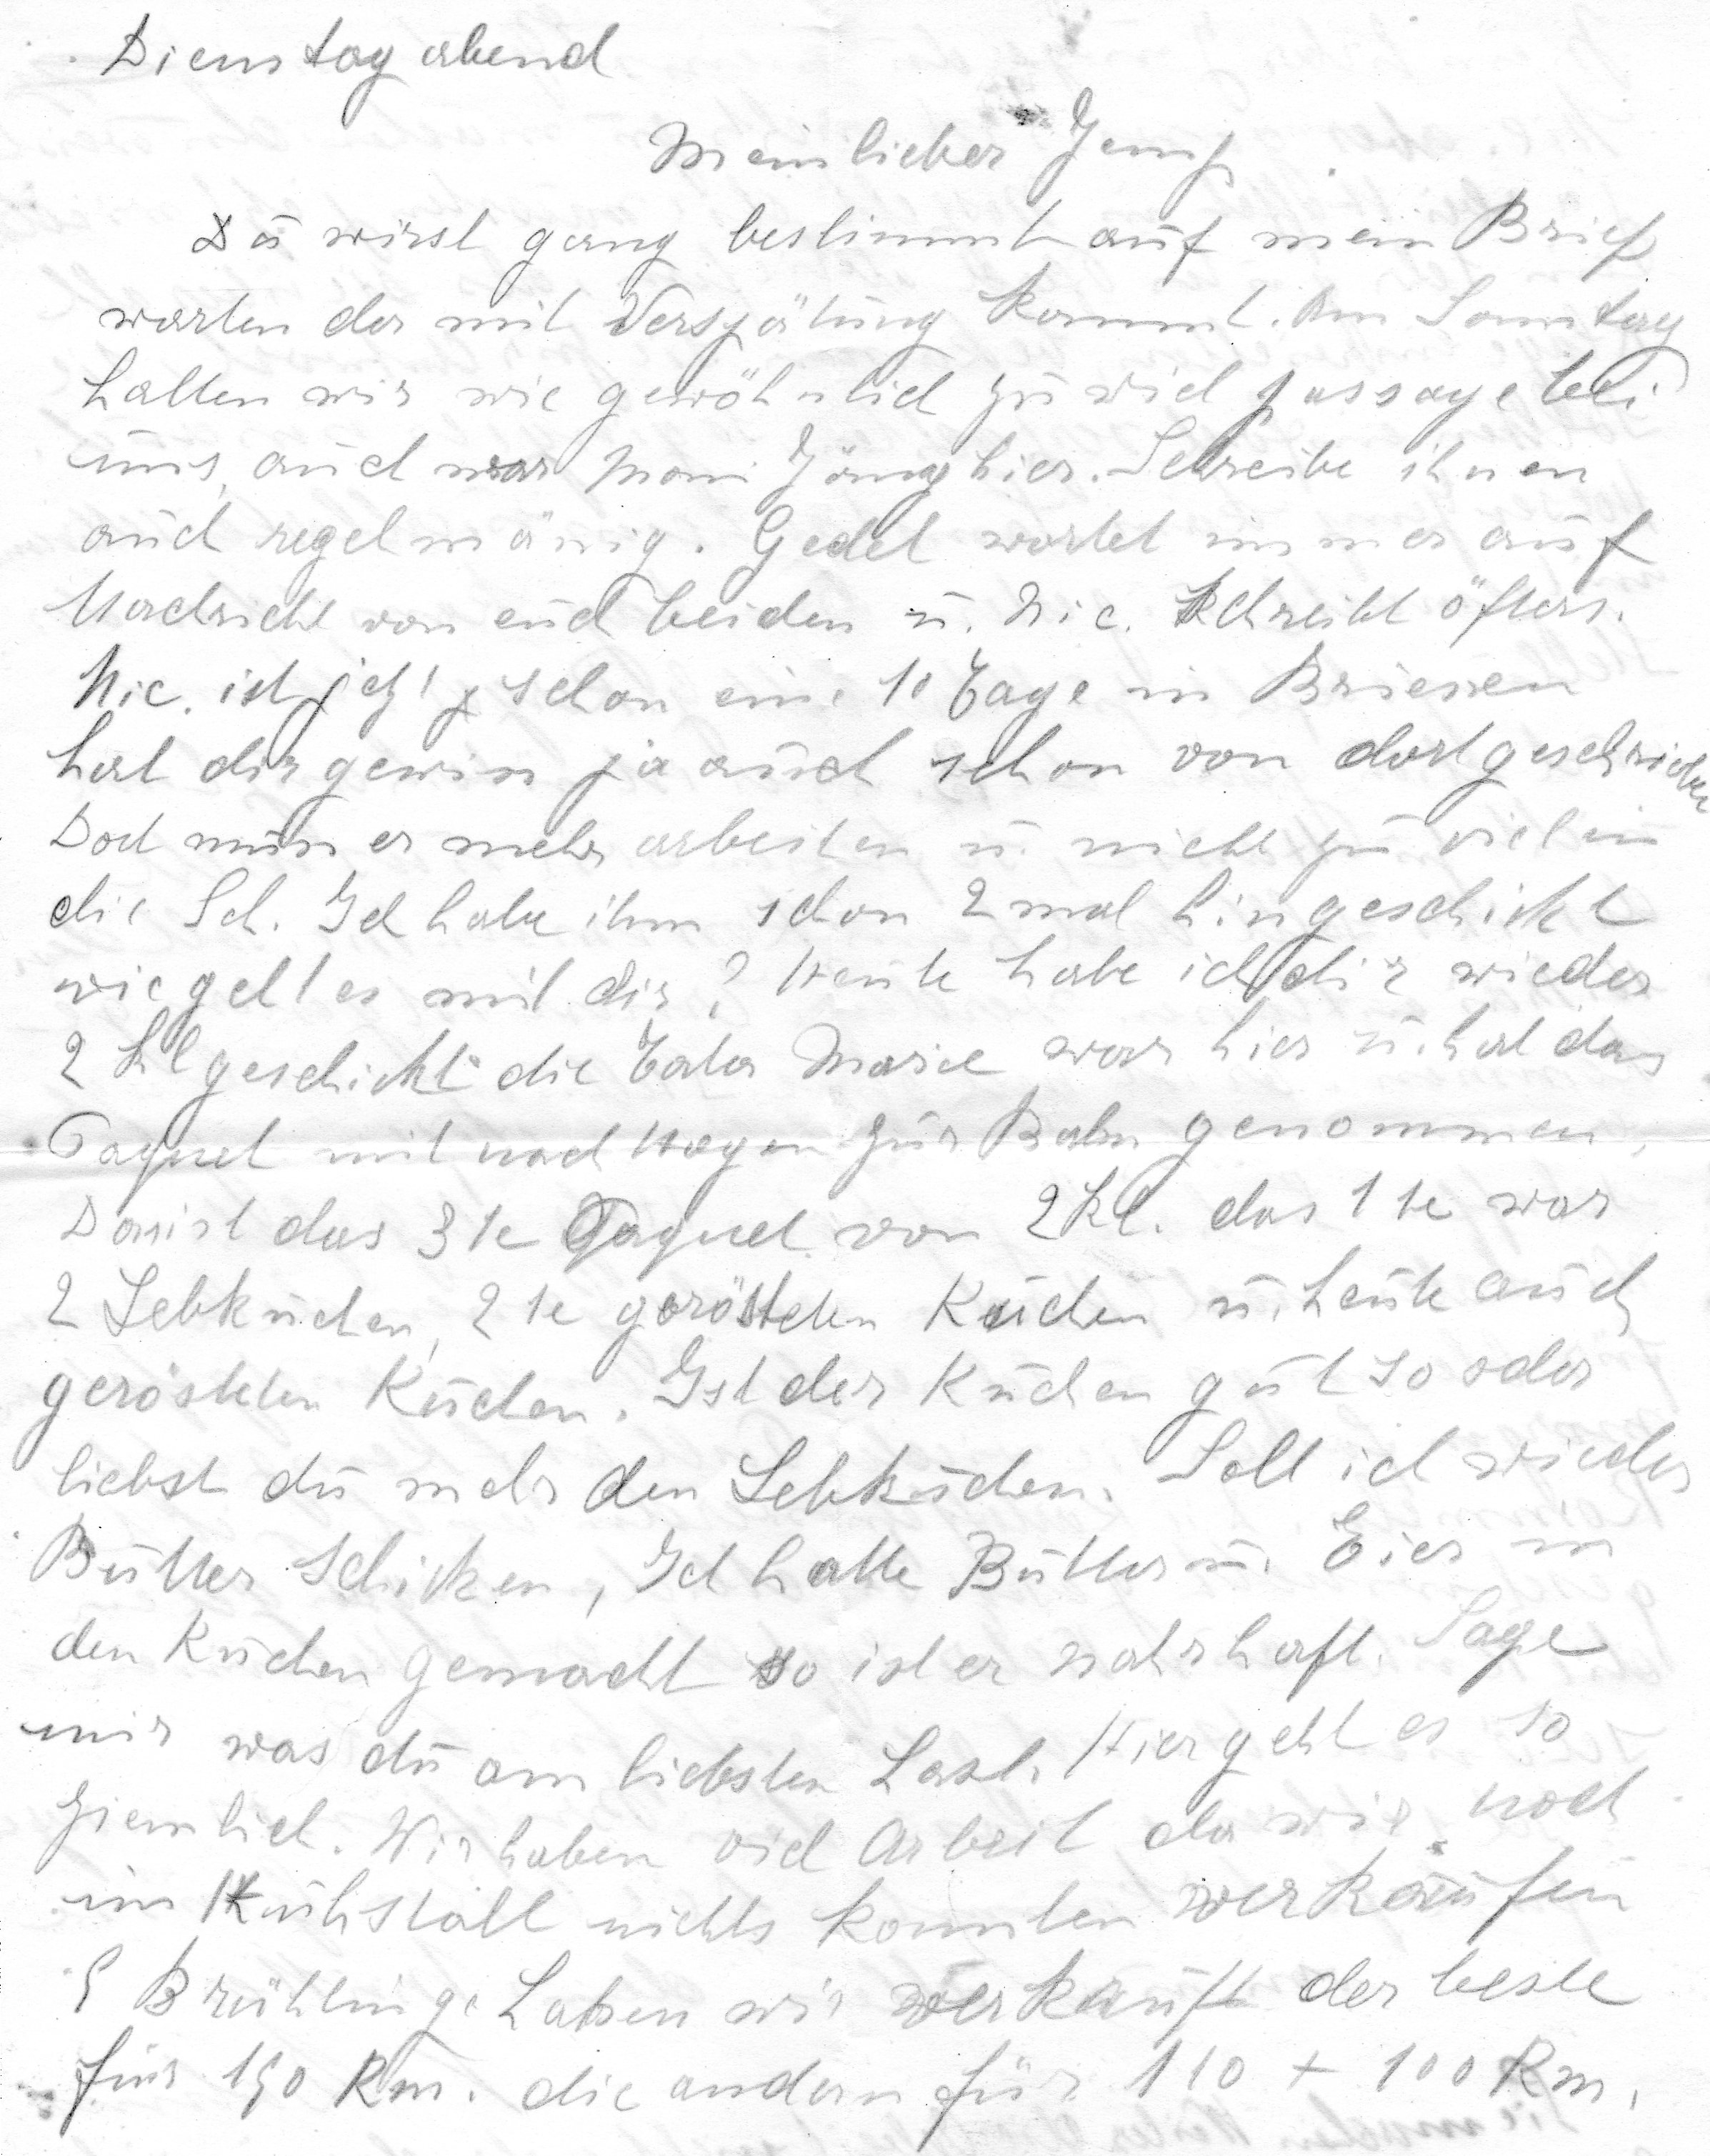 Dienstag abend
Mein lieber Jemp
Dū wirst ganz bestimmt auf mein Brief
warten der mit Verspätung kommt. Am Sonntag
hatten wir wie gewöhnlich zu viel passage bei
uns, auch war Moni Jäng hier. Schreibe ihnen
auch regelmäsig. Gedel wartet immer auf
Nachricht von euch beiden u. Nic. schreibt öfters.
Nic. ist jetzt schon eine 10 Tage in Briesen
hat dir gewiss ja auch schon von dort geschrieben
Doch muss er mehr arbeiten u. nicht zu viel in
die Sch. Ich habe ihm schon 2 mal hingeschickt
wie geht es mit dir? Heute habe ich dir wieder
2 kl geschickt die Tata Marie war hier u. hat das
Paquet mit nach Hagen zur Bahn genommen,
Das ist das 3te Paquet von 2 Kl. das 1te war
2 Lebkuchen, 2te gerösteten Kuchen u. heute auch
gerösteten Kuchen. Ist der Kuchen gut so oder
liebst du mehr den Lebkuchen. Soll ich wieder
Butter schicken, Ich hatte Butter u. Eier in
den Kuchen gemacht so ist er nahrhaft. Sage
mir was du am liebsten hast. Hier geht es so
ziemlich. Wir haben viel Arbeit da wir noch
im Kuhstall nichts konnten verkaufen
5 Brühlinge haben wir verkauft der beste
für 150 Rm. die andern für 110 + 100 Rm.